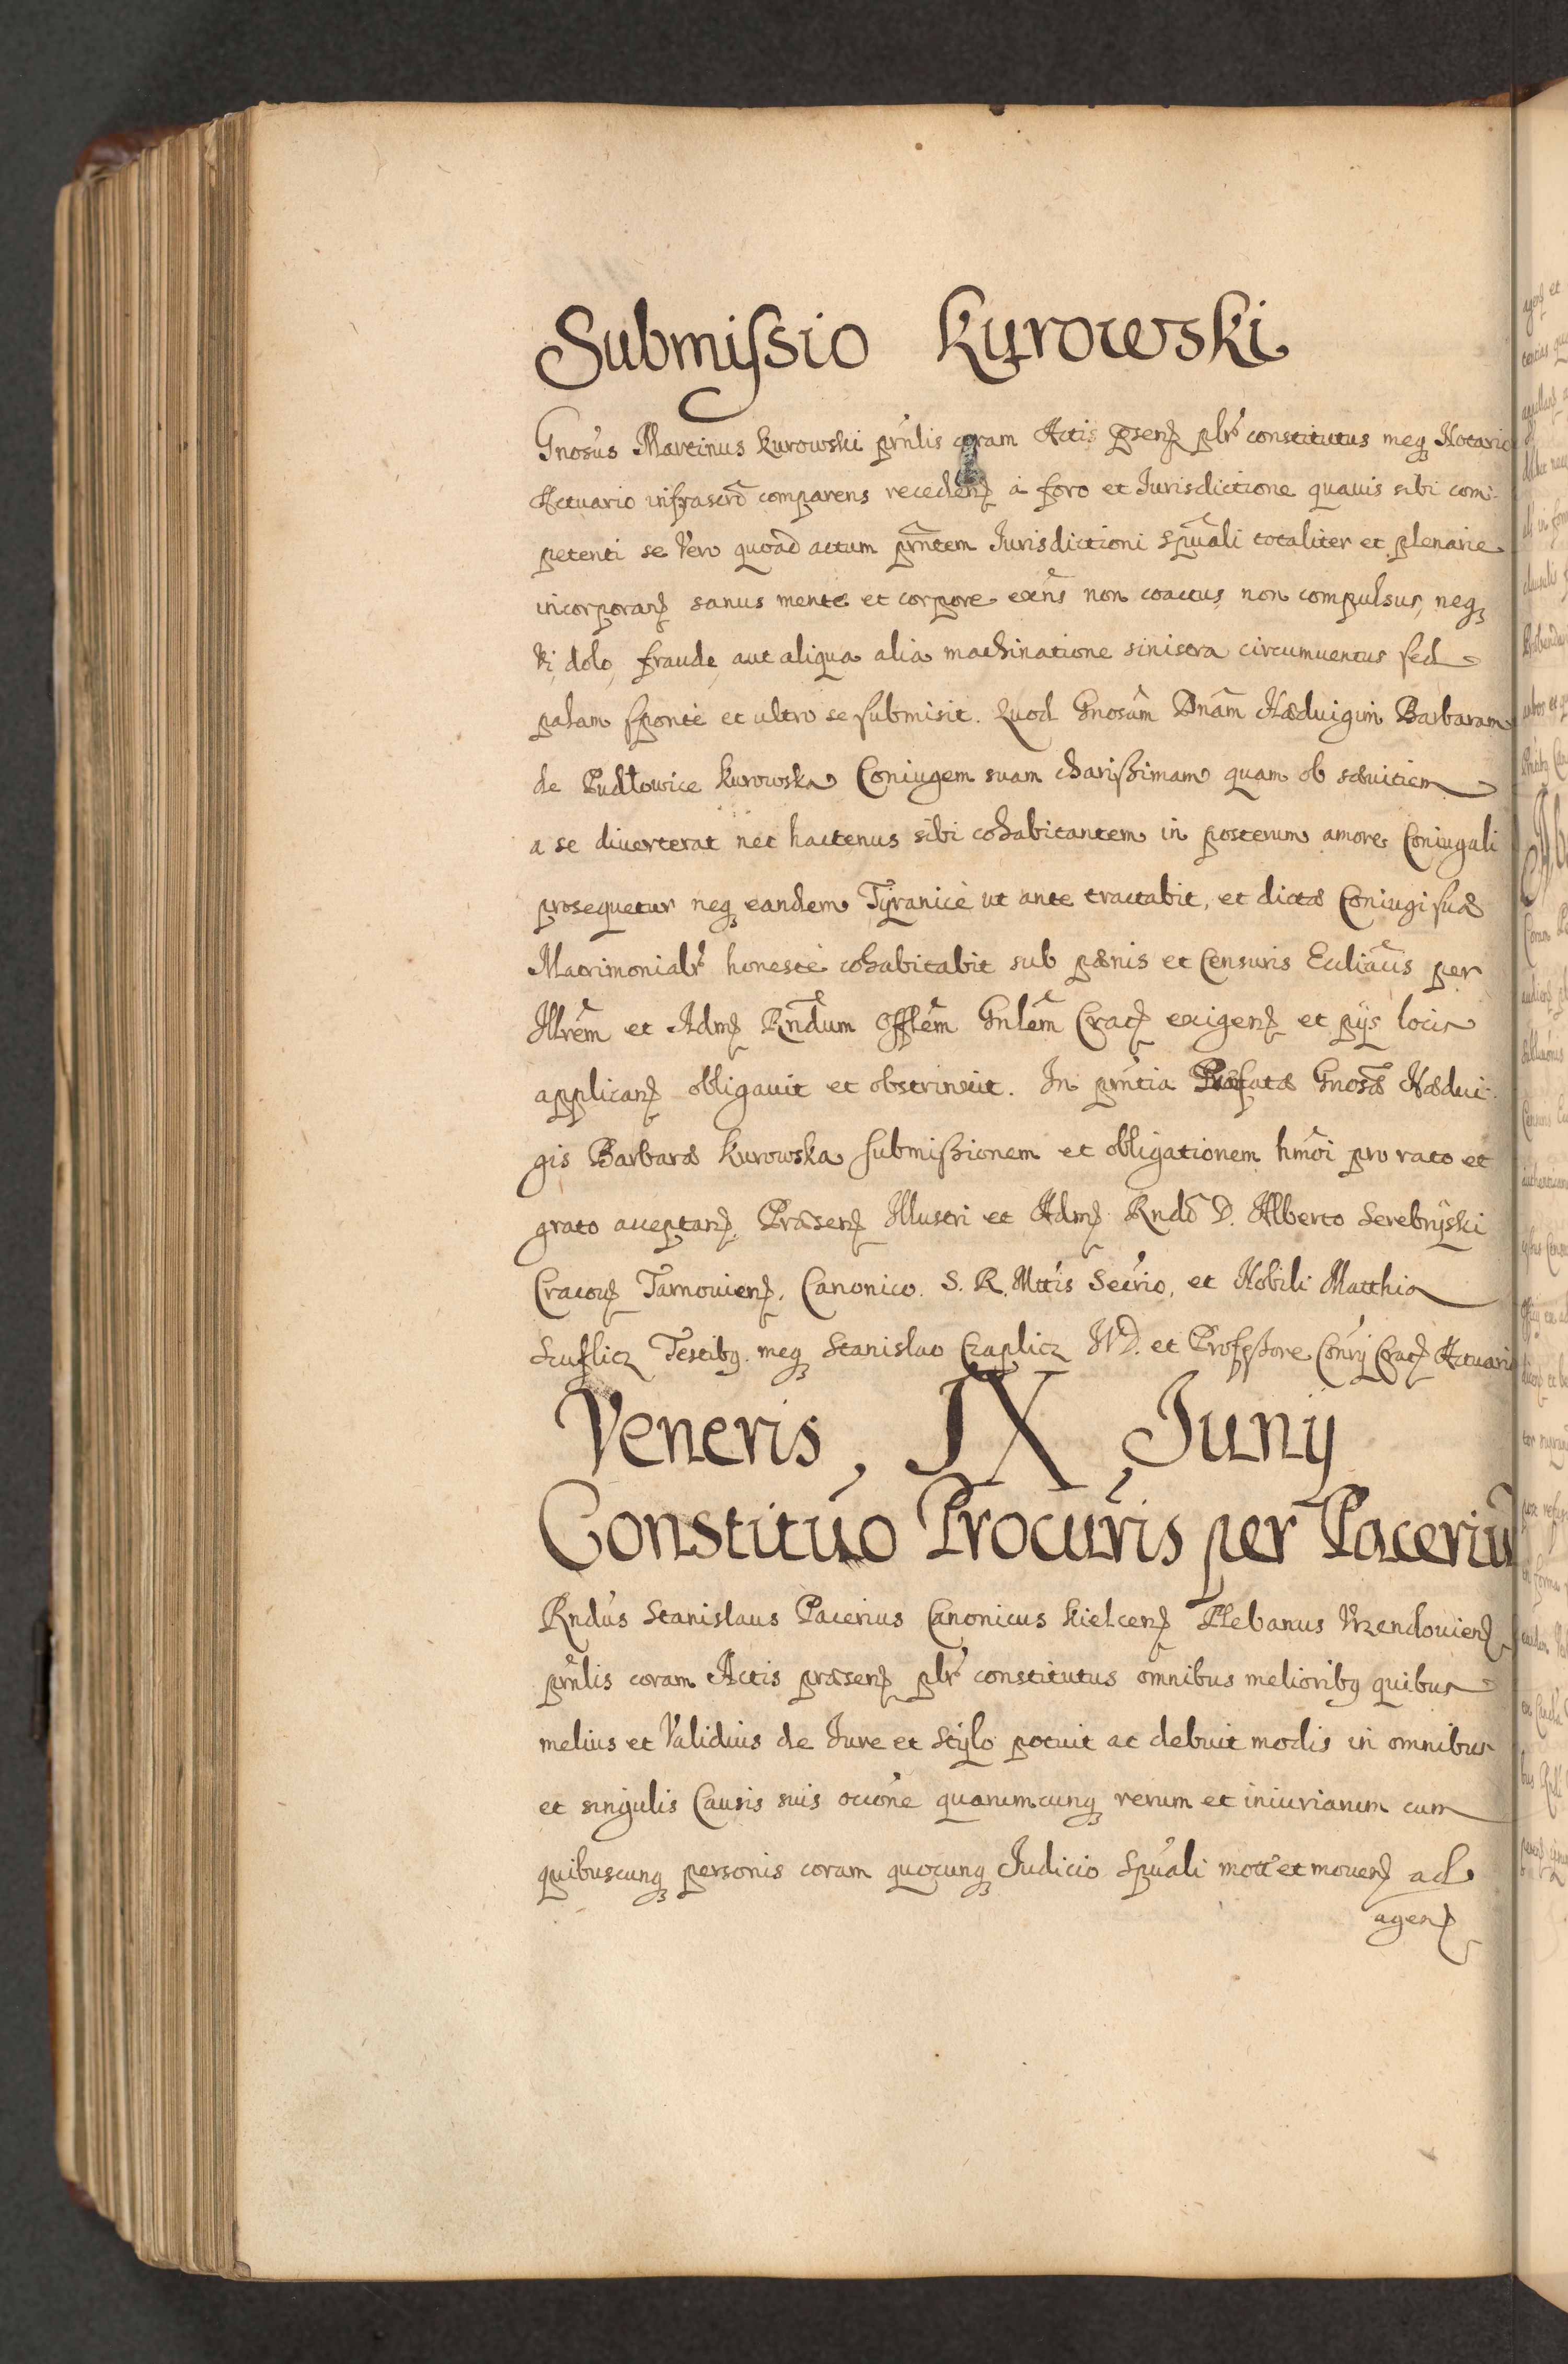 Submissio Kurowski
Gnosus Martinus Kurowski prnlis coram Actis psenz plr constitutus meq Notario
Actuario infrascrō comparens recedenz à foro et Iurisdictione quavis sibi com-
petenti se Vero quoad actum prntem Iurisdictioni Spuali totaliter et plenarie
incorporanz sanus mente et corpore exns non coactus, non compulsus, neq
Vi, dolo, fraude, aut aliqua alia machinatione sinistra circumuentus sed
palam sponte et ultro se submisit. Quod Gnosam Dnam Hæduigim Barbaram
de Pudłowice Kurowska Coniugem suam charissimam quam ob sæuitiem
a se diuerterat nec hactenus sibi cohabitantem in posterum amore Coniugali
prosequetur neq eandem Tyranicè ut ante tractabit, et dictæ Coniugi suæ
Matrimonialr honestè cohabitabit sub pænis et Censuris Ecclīacis per
Illrem et Admz Rndum Offlem Gnlem Cracz exigenz et pijs locis
applicanz obligauit et obstrinxit. In prntia Præfatæ Gnosæ Hædui-
gis Barbaræ Kurowska submissionem et obligationem hmoi pro rato et
grato acceptanz. Præsenz Illustri et Admz Rndo D. Alberto Serebryski
Cracouz Tarnouienz, Canonico. S. R. Mttis Secrio, et Nobili Matthia
Testibq. meq Stanislao Czaplicz et Professore Conrij Cracz Actuario
Veneris, IX, Junij
Constituo Procuris per Pacerium
Rndus Stanislaus Pacerius Canonicus Kielcenz Plebanus Vrzendouienz
prnlis coram Actis præsenz plr constitutus omnibus melioribq quibus
melius et Validius de Iure et Stylo potuit ac debuit modis in omnibus
et singulis Causis suis occone quarumcunq rerum et iniuriarum cum
quibuscunq personis coram quocunq Iudicio Spuali mott et mouenz ad
agenz